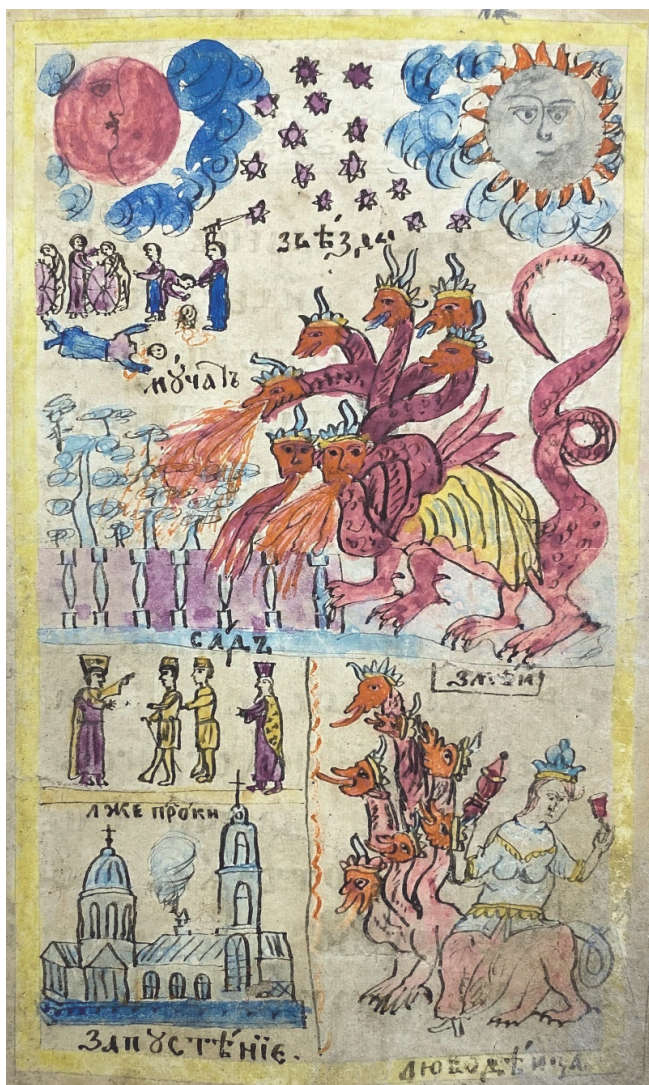 звѣ́зды
мꙋ́чатъ
са́дъ
змѣй
лже про́ки
запꙋстѣ́нїе.
любодѣ́ица